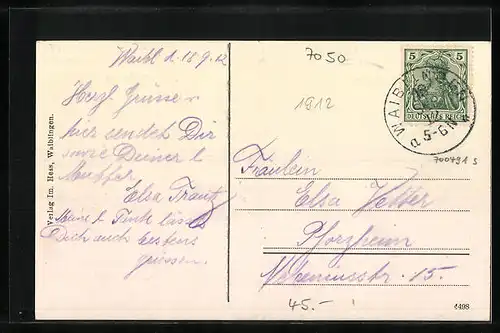 7050
Waibl. d. 18.9.12
1912
Herzl. Grüsse
hier sendet Dir
sowie Deiner l.
Mutter
Elsa Trautz
Meine l. Tante lässt
Dich auch bestens
grüssen.
Verlag Im. Hess, Waiblingen.
5 5
DEUTSCHES REICH
WAIBLINGEN
5-6 N
700491 s
Fräulein
Elsa Vetter
Pforzheim
15.
45.-
4498